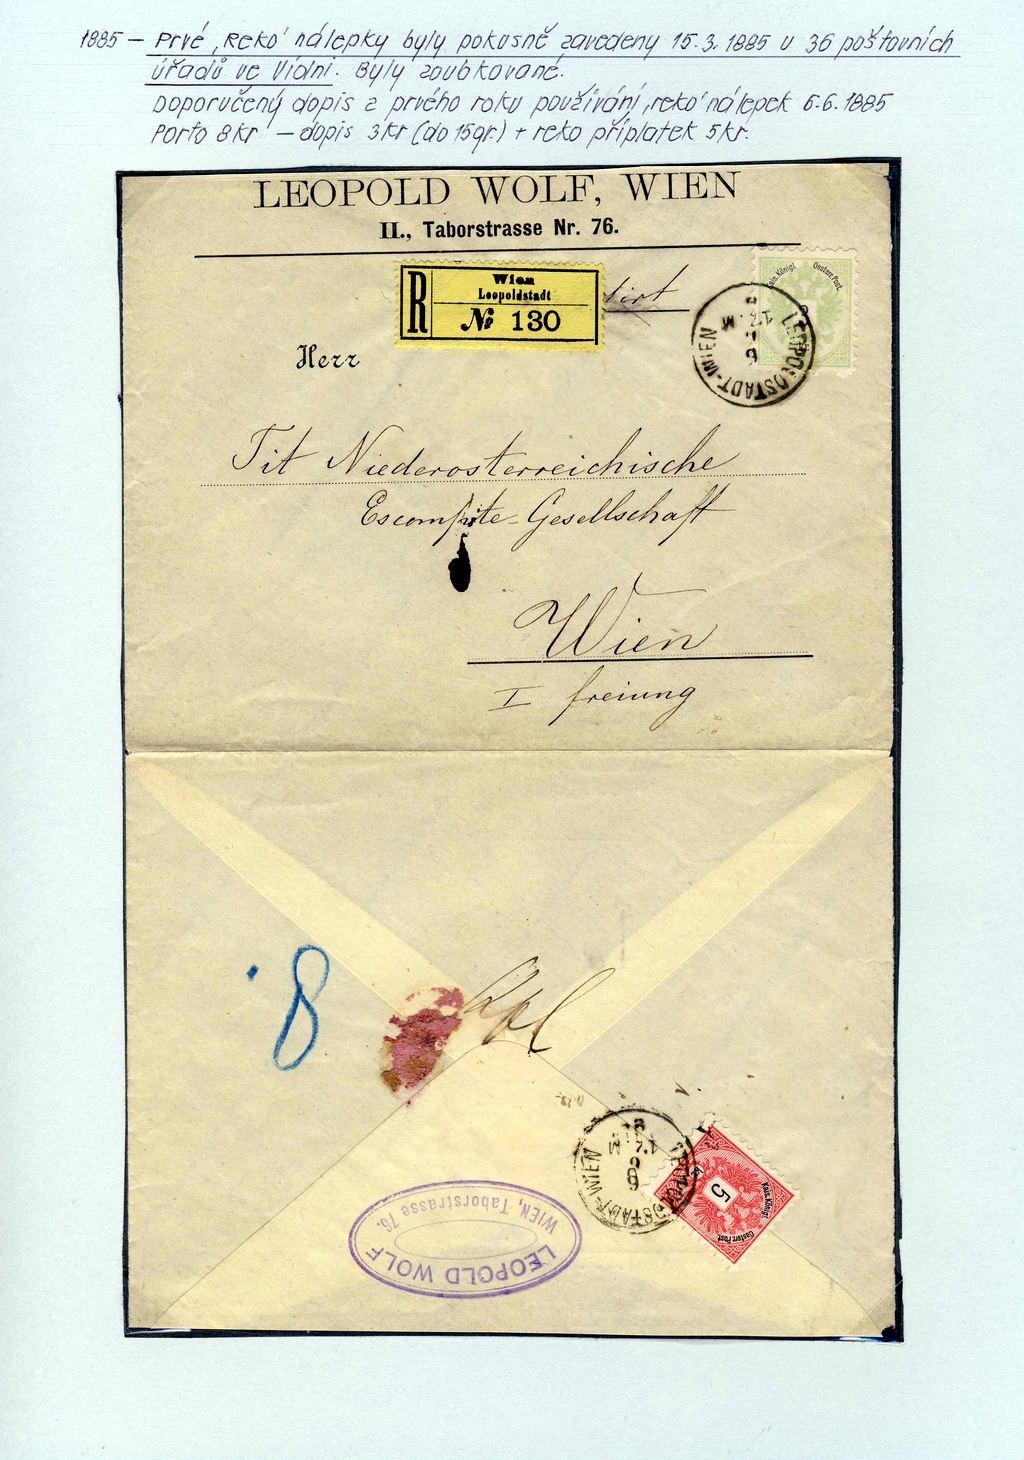 1885 – Prvé ‚Reko‘ nálepky byly pokusně zavedeny 15.3.1885 u 36 poštovních
úřadů ve Vídni. Byly zoubkované.
Doporučený dopis z prvého roku používání ‚reko‘ nálepek 6.6.1885
Porto 8 kr – dopis 3 kr (do 15 gr.) + reko příplatek 5 kr.
LEOPOLD WOLF, WIEN
II., Taborstrasse Nr. 76.
R
Wien
Leopoldstadt
№ 130
Kais. Königl. Oesterr. Post.
LEOPOLDSTADT-WIEN
Herr
Tit Niederosterreichische
Escompte-Gesellschaft
Wien
I freiung
8
LEOPOLDSTADT-WIEN
5
Kais. Königl. Oesterr. Post.
LEOPOLD WOLF
WIEN, Taborstrasse 76.